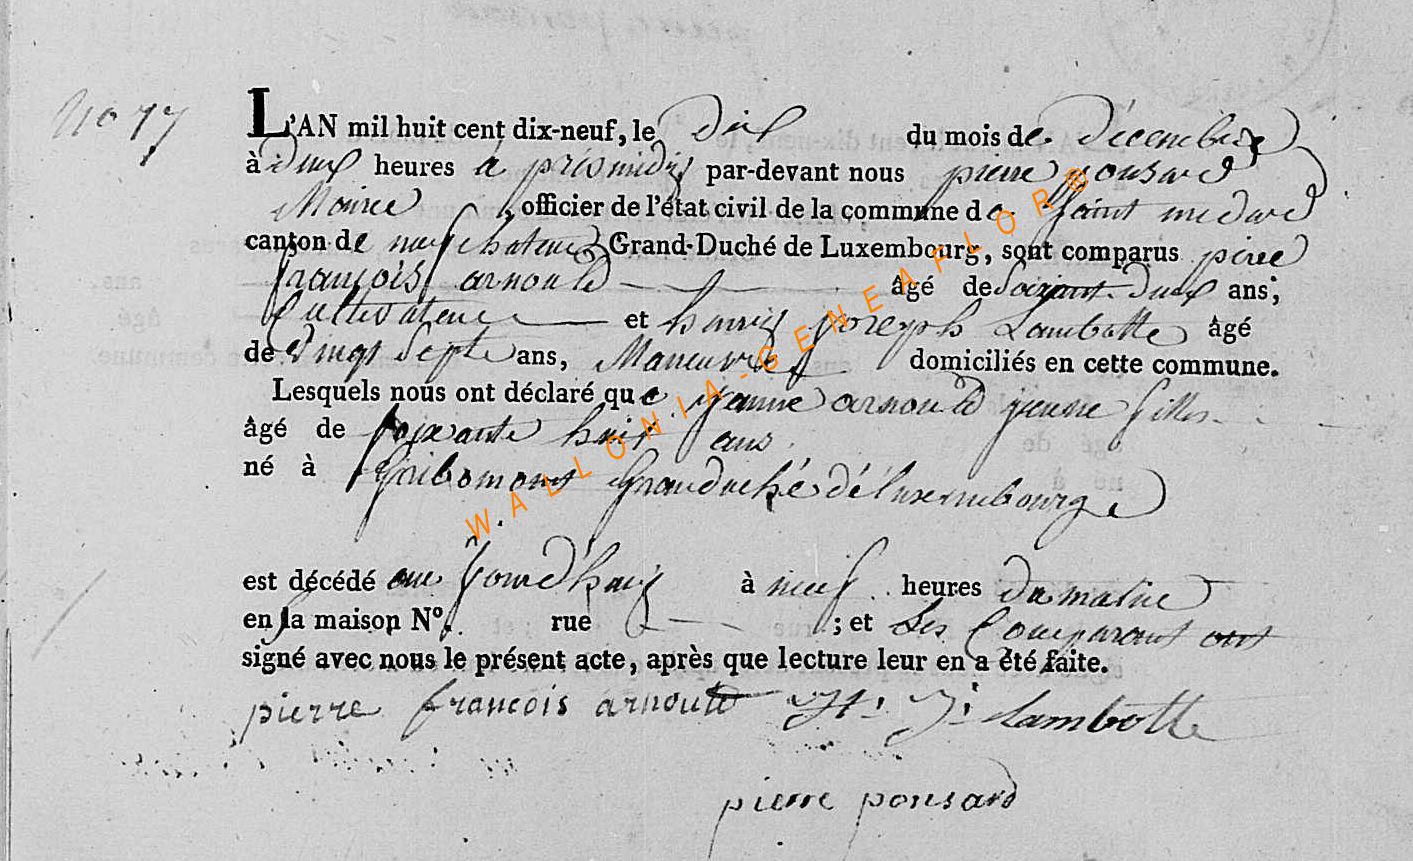 No 77
L'AN mil huit cent dix-neuf, le dix du mois de Décembre
à deux heures à prismidis par-devant nous pierre ponsard
Mairee , officier de l'état civil de la commune de Saint medard
canton de neufchateau Grand-Duché de Luxembourg, sont comparus piere
françois arnould âgé de Soixant deux ans,
Cultivateur et henriy joseph Lambotte âgé
de vingt Septe ans, Maneuvre domiciliés en cette commune.
Lesquels nous ont déclaré que jeanne arnould jeune filles
âgé de soixante huit ans
né à Gribomont Granduché dé luxembourge
est décédé au jourd'huiy à neuf heures du matine
en sa maison No. rue ; et Les Comparant ont
signé avec nous le présent acte, après que lecture leur en a été faite.
pierre françois arnould H. J. Lambotte
pierre ponsard
WALLONIA-GENEAFLOR®